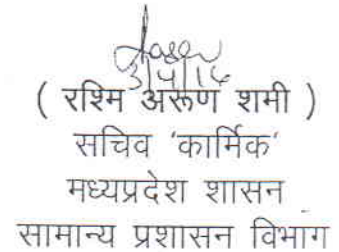 3/4/14
( रश्मि अरूण शमी )
सचिव 'कार्मिक'
मध्यप्रदेश शासन
सामान्य प्रशासन विभाग